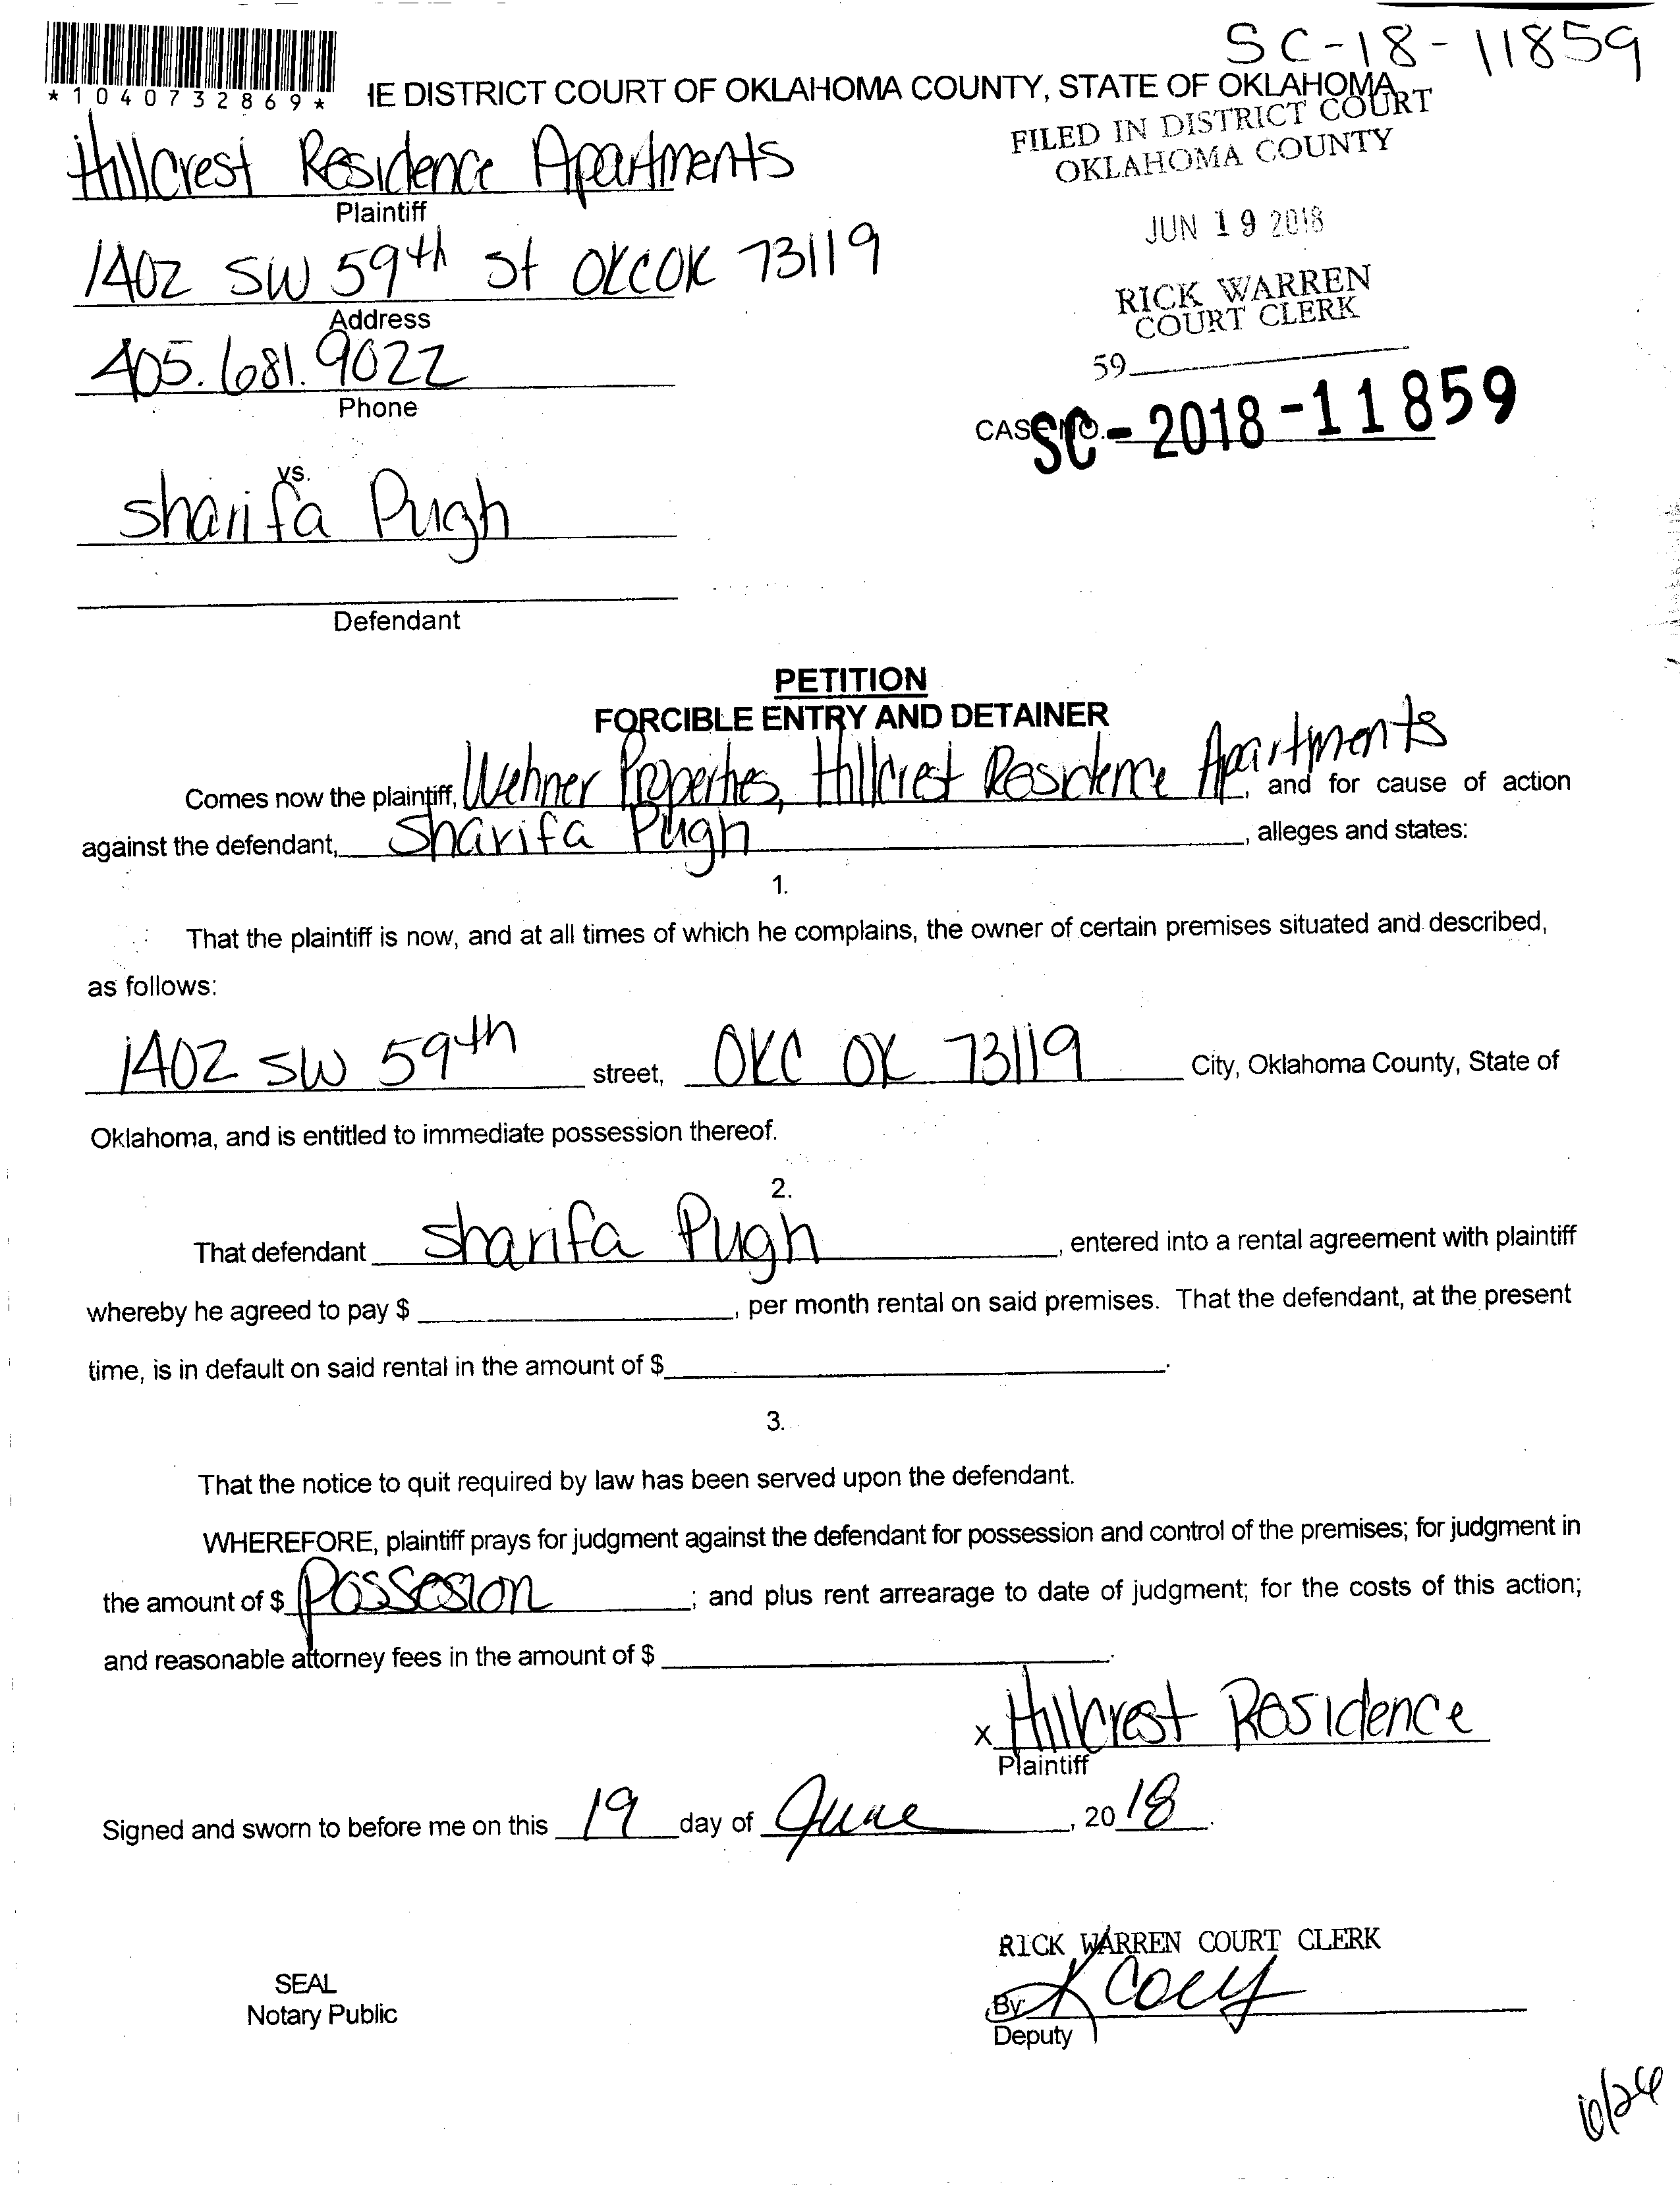 SC-18-11859
*1040732869*
IE DISTRICT COURT OF OKLAHOMA COUNTY, STATE OF OKLAHOMA
FILED IN DISTRICT COURT
OKLAHOMA COUNTY
Hillcrest Residence Apartments
Plaintiff
JUN 19 2018
1402 SW 59th St OKC OK 73119
Address
RICK WARREN
COURT CLERK
405.681.9022
Phone
59
CASE NO. SC-2018-11859
vs.
Sharifa Pugh
Defendant
PETITION
FORCIBLE ENTRY AND DETAINER
Comes now the plaintiff, Wehner Properties, Hillcrest Residence Apartments, and for cause of action
against the defendant, Sharifa Pugh, alleges and states:
1.
That the plaintiff is now, and at all times of which he complains, the owner of certain premises situated and described,
as follows:
1402 SW 59th street, OKC OK 73119 City, Oklahoma County, State of
Oklahoma, and is entitled to immediate possession thereof.
2.
That defendant Sharifa Pugh, entered into a rental agreement with plaintiff
whereby he agreed to pay $ , per month rental on said premises. That the defendant, at the present
time, is in default on said rental in the amount of $ .
3.
That the notice to quit required by law has been served upon the defendant.
WHEREFORE, plaintiff prays for judgment against the defendant for possession and control of the premises; for judgment in
the amount of $ Possesion ; and plus rent arrearage to date of judgment; for the costs of this action;
and reasonable attorney fees in the amount of $ .
x Hillcrest Residence
Plaintiff
Signed and sworn to before me on this 19 day of June, 2018.
RICK WARREN COURT CLERK
SEAL
Notary Public
By
Deputy
6/26